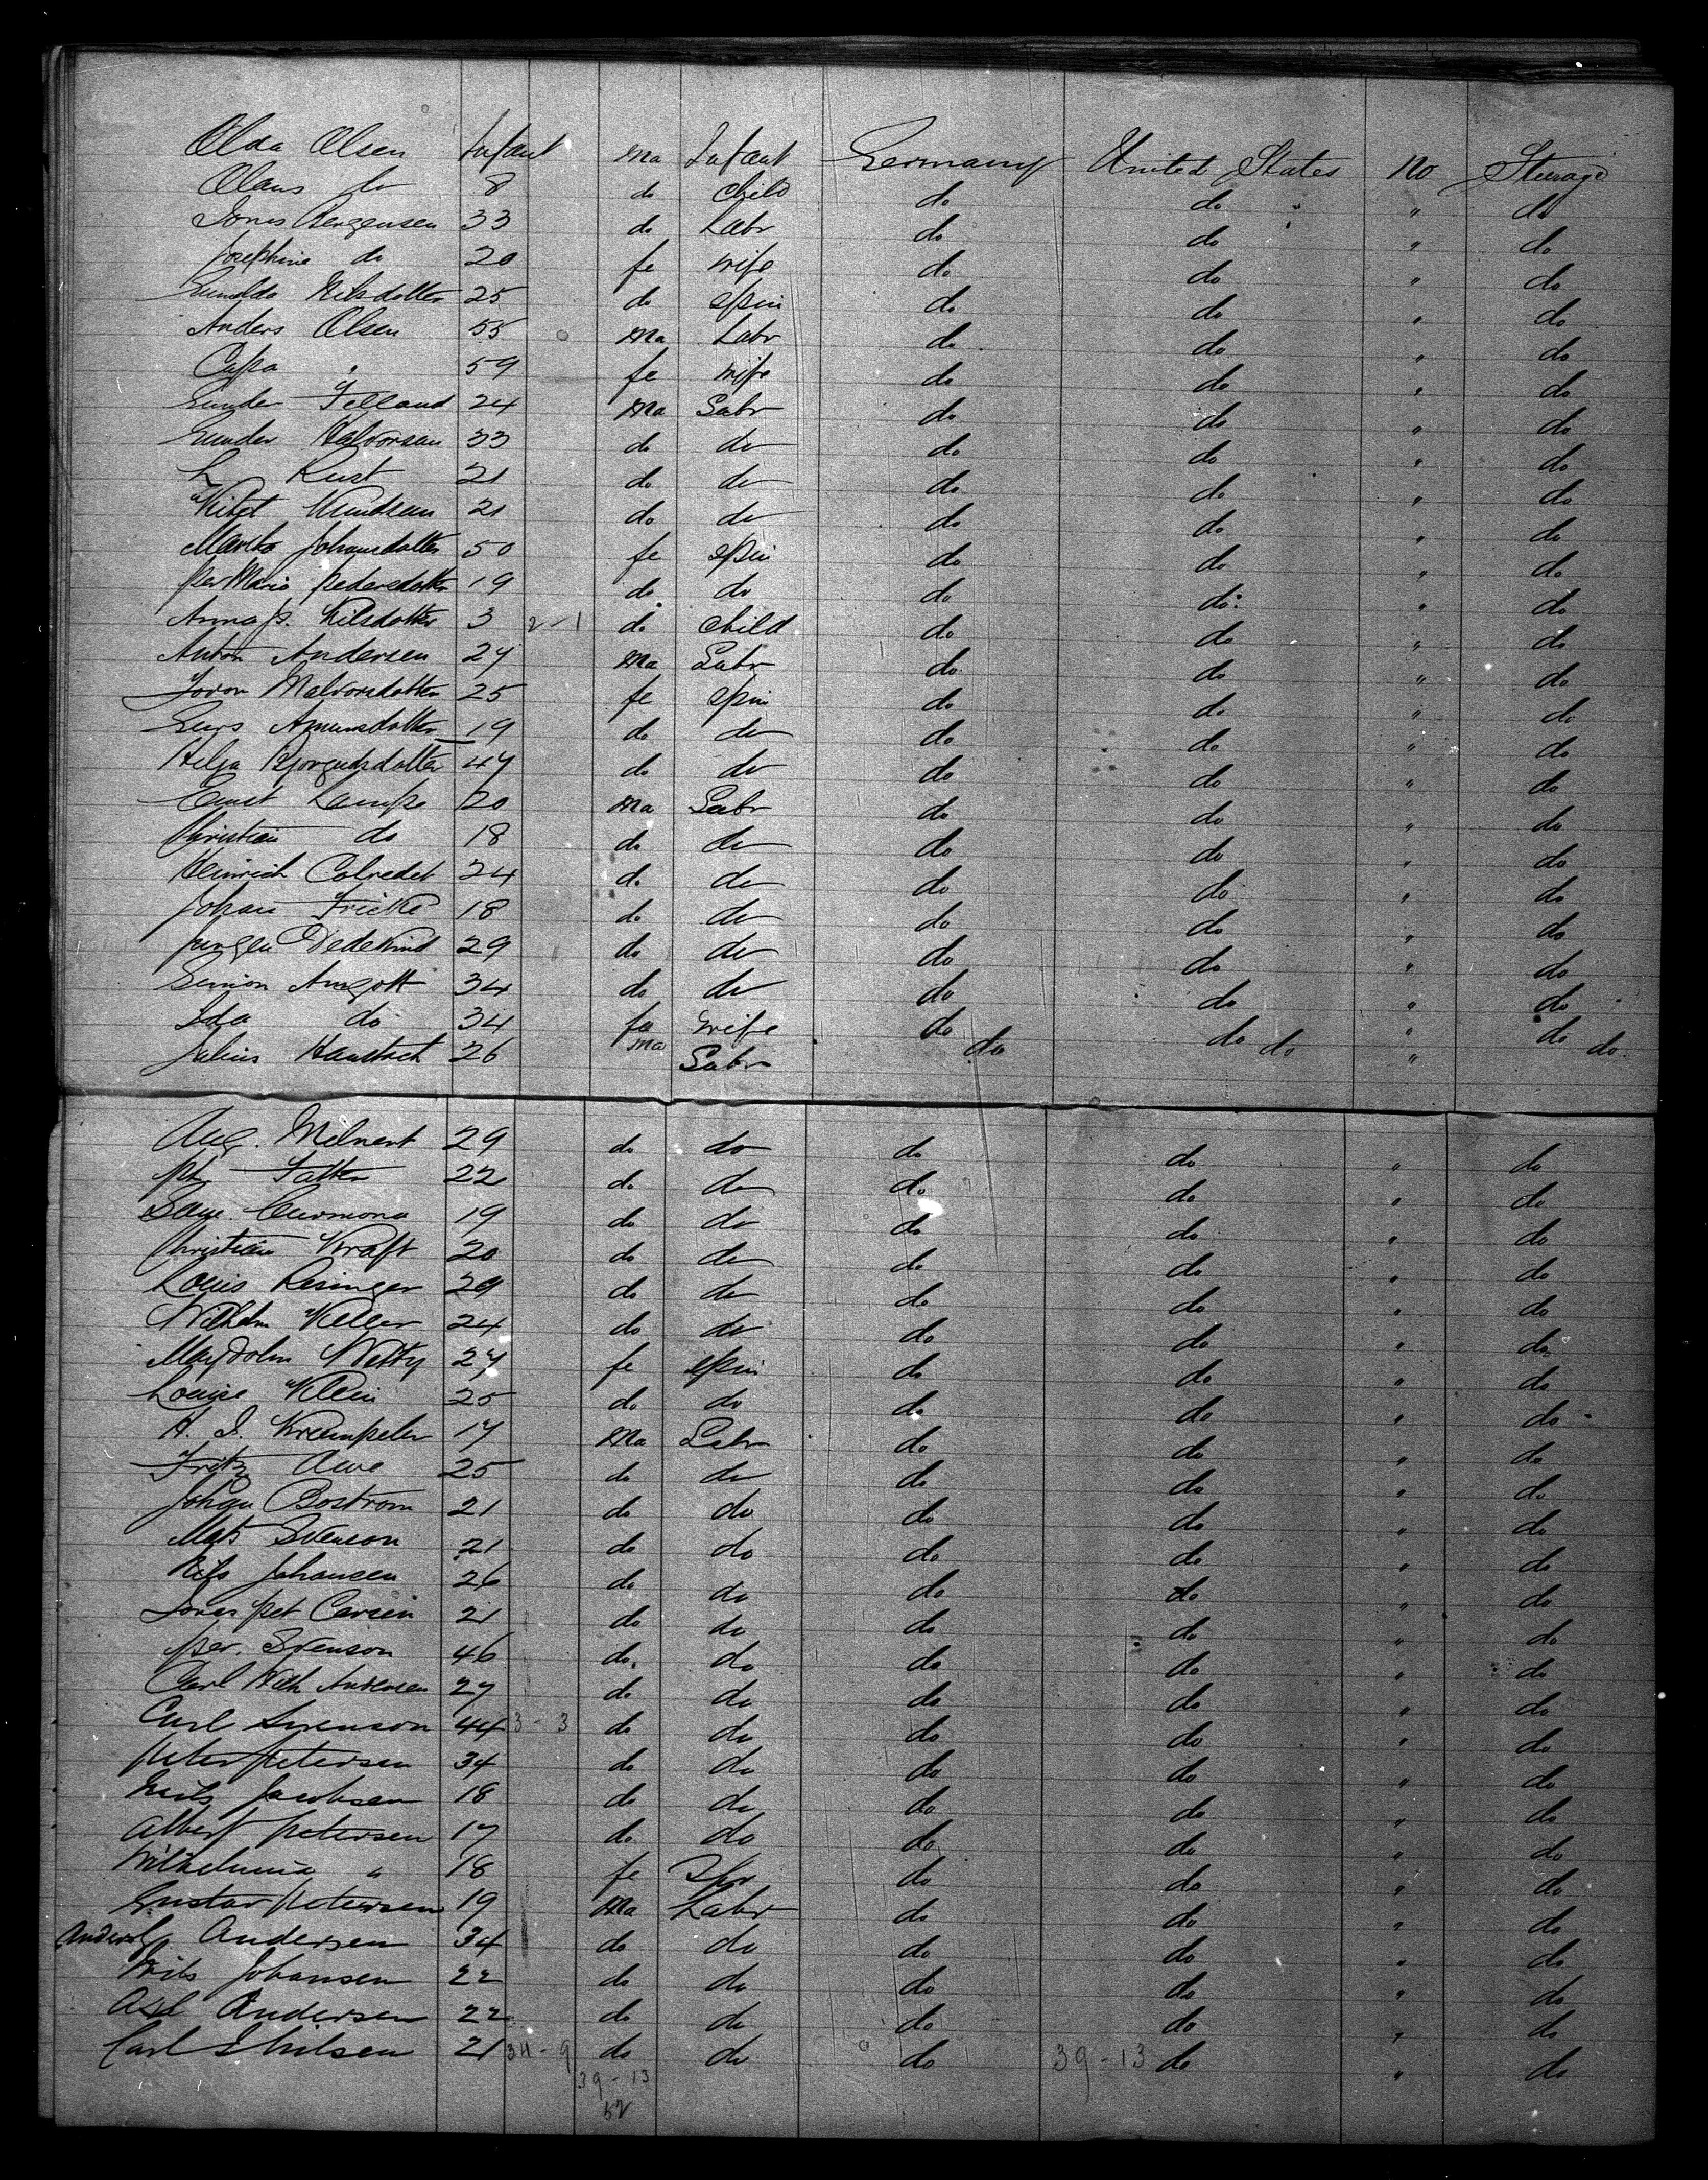 Olda Olsen Infant ma Infant Germany United States No Steerage
Olaus do 8 do child do do " do
Jonas Bergensen 33 do Labr do do " do
Josephine do 20 fe wife do do " do
Gunilda Nilsdotter 25 do spin do do " do
Anders Olsen 55 ma Labr do do " do
Cajsa " 59 fe wife do do " do
Gunder Felland 24 ma Labr do do " do
Gunder Halvorsen 33 do do do do " do
L Rust 21 do do do do " do
Knudsen 21 do do do do " do
Martha Johansdotter 50 fe spin do do " do
per Maria pedersdotter 19 do do do do " do
Anna p. Nilsdotter 3 2-1 do child do do " do
Anton Andersen 27 ma Labr do do " do
Joron Halvorsdotter 25 fe spin do do " do
Amunsdotter 19 do do do do " do
Helga 47 do do do do " do
Ernst Kampe 20 ma Labr do do " do
Christian do 18 do do do do " do
Heinrich 24 do do do do " do
Johan Fricke 18 do do do do " do
Jurgen Dedekind 29 do do do do " do
Simon Amgott 34 do do do do " do
Ida do 34 fe wife do do " do
Julius 26 ma Labr do do " do
Aug. 29 do do do do " do
22 do do do do " do
19 do do do do " do
Christian Kraft 20 do do do do " do
Louis Resinger 29 do do do do " do
Wilhelm Keller 24 do do do do " do
27 fe spin do do " do
Louise Klein 25 do do do do " do
H. 17 ma Labr do do " do
Fritz Aue 25 do do do do " do
Johan Bostrom 21 do do do do " do
Mats Svenson 21 do do do do " do
Nils Johansen 26 do do do do " do
Jonas pet 21 do do do do " do
per. Svenson 46 do do do do " do
Carl Wilh Andersen 27 do do do do " do
Carl Svenson 44 3-3 do do do do " do
Peter petersen 34 do do do do " do
Nils Jacobsen 18 do do do do " do
Albert petersen 17 do do do do " do
Wilhelmina " 18 fe Spr do do " do
Gustav petersen 19 ma Labr do do " do
Andersen 34 do do do do " do
Nils Johansen 22 do do do do " do
Axl Andersen 22 do do do do " do
Carl 21 34-9 do do do 39-13 do " do
39-13
52